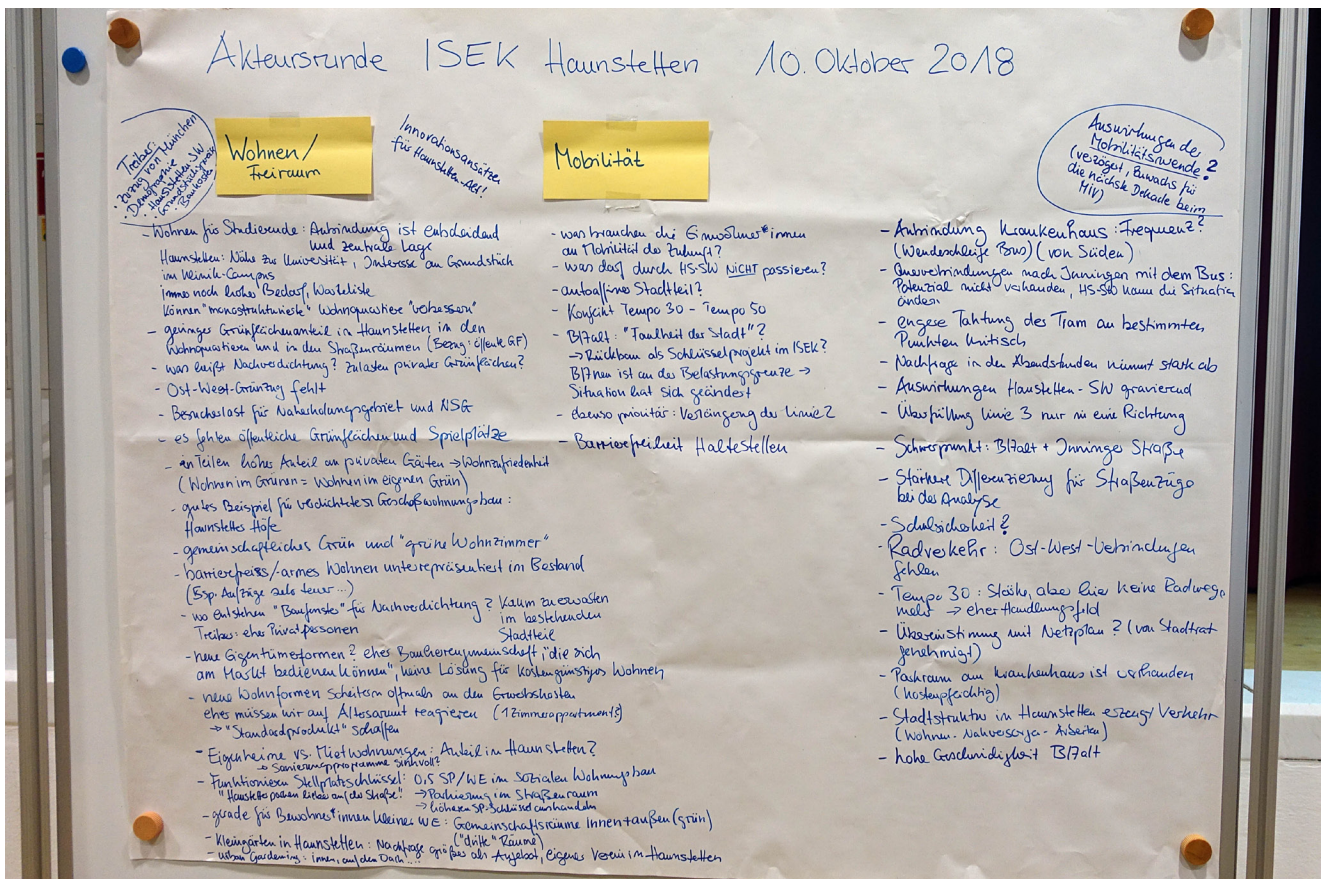 Akteursrunde ISEK Haunstetten 10. Oktober 2018
Treiber:
• Zuzug von München
• Demographie
• Haunstetten SW
• Grundstückspreise
• Baukosten
Wohnen/
Freiraum
Innovationsansätze
für Haunstetten-Alt!
Mobilität
Auswirkungen der
Mobilitätswende?
(verzögert, Zuwachs für
die nächste Dekade beim
MIV)
- Wohnen für Studierende: Anbindung ist entscheidend
und zentrale Lage
Haunstetten: Nähe zur Universität, Interesse an Grundstück
im Klinik-Campus
immer noch hoher Bedarf, Warteliste
Können "monostrukturierte" Wohnquartiere "verbessern"
- geringer Grünflächenanteil in Haunstetten in den
Wohnquartieren und in den Straßenräumen (Bezug: öffentl. GF)
- was heißt Nachverdichtung? zulasten privater Grünflächen?
- Ost-West-Grünzug fehlt
- Besucherlast für Naherholungsgebiet und NSG
- es fehlen öffentliche Grünflächen und Spielplätze
- in Teilen hoher Anteil an privaten Gärten → Wohnzufriedenheit
(Wohnen im Grünen = Wohnen im eigenen Grün)
- gutes Beispiel für verdichteten Geschoßwohnungsbau:
Haunstetter Höfe
- gemeinschaftliches Grün und "grüne Wohnzimmer"
- barrierefreies/-armes Wohnen unterrepräsentiert im Bestand
(Bsp. Aufzüge sehr teuer...)
- wo entstehen "Baufenster" für Nachverdichtung? Kaum zu erwarten
im bestehenden
Stadtteil
Treiber: eher Privatpersonen
- neue Eigentümerformen? eher Bauherrengemeinschaft, "die sich
am Markt bedienen können", keine Lösung für kostengünstiges Wohnen
- neue Wohnformen scheitern oftmals an den Erwerbskosten
eher müssen wir auf Altersarmut reagieren (1 Zimmerappartments)
→ "Standardprodukt" schaffen
- Eigenheime vs. Mietwohnungen: Anteil in Haunstetten?
→ Sanierungsprogramme sinnvoll?
- Funktionieren Stellplatzschlüssel: 0,5 SP/WE im sozialen Wohnungsbau
"Haunstetter parken lieber auf der Straße!" → Parkierung im Straßenraum
→ höheren SP-Schlüssel aushandeln
- gerade für Bewohner*innen kleiner WE: Gemeinschaftsräume Innen+außen (grün)
("dritte" Räume)
- Kleingärten in Haunstetten: Nachfrage größer als Angebot, eigener Verein in Haunstetten
- urban Gardening: innen, auf dem Dach...
- was brauchen die Einwohner*innen
an Mobilität der Zukunft?
- was darf durch HS-SW NICHT passieren?
- autoaffiner Stadtteil?
- Konflikt Tempo 30 - Tempo 50
- B17alt: "Faulheit der Stadt"?
→ Rückbau als Schlüsselprojekt im ISEK?
B17neu ist an der Belastungsgrenze →
Situation hat sich geändert
- ebenso prioritär: Verlängerung der Linie 2
- Barrierefreiheit Haltestellen
- Anbindung Krankenhaus: Frequenz?
(Wendeschleife Bus) (von Süden)
- Querverbindungen nach Inningen mit dem Bus:
Potenzial nicht vorhanden, HS-SW kann die Situation
ändern
- engere Taktung der Tram an bestimmten
Punkten kritisch
- Nachfrage in den Abendstunden nimmt stark ab
- Auswirkungen Haustetten-SW gravierend
- Überfüllung Linie 3 nur in eine Richtung
- Schwerpunkt: B17alt + Inninger Straße
- Stärkere Differenzierung für Straßenzüge
bei der Analyse
- Schulsicherheit?
- Radverkehr: Ost-West-Verbindungen
fehlen
- Tempo 30: aber hier keine Radwege
mehr → eher Handlungsfeld
- Übereinstimmung mit Netzplan? (von Stadtrat
genehmigt)
- Parkraum am Krankenhaus ist vorhanden
(kostenpflichtig)
- Stadtstruktur in Haunstetten erzeugt Verkehr
(Wohnen - Nahversorga - Arbeiten)
- hohe Geschwindigkeit B17alt